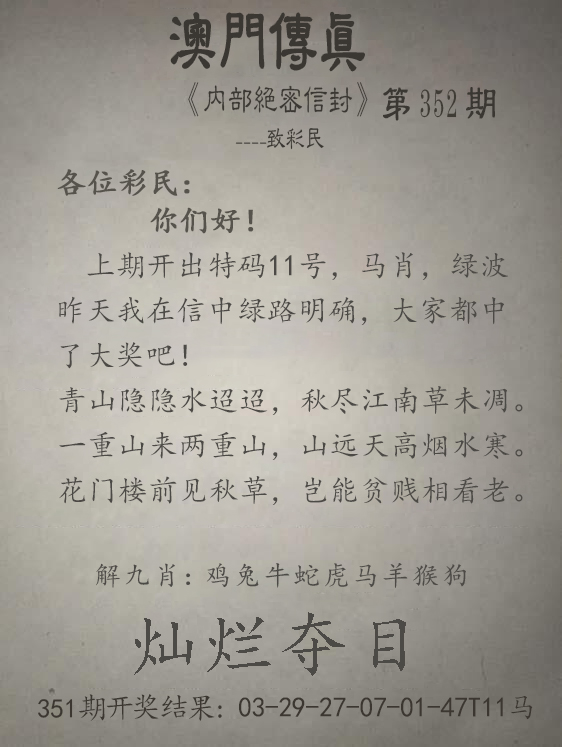 澳門傳眞
《内部絕密信封》第352期
----致彩民
各位彩民：
你们好！
上期开出特码11号，马肖，绿波
昨天我在信中绿路明确，大家都中
了大奖吧！
青山隐隐水迢迢，秋尽江南草未凋。
一重山来两重山，山远天高烟水寒。
花门楼前见秋草，岂能贫贱相看老。
解九肖：鸡兔牛蛇虎马羊猴狗
灿烂夺目
351期开奖结果：03-29-27-07-01-47T11马